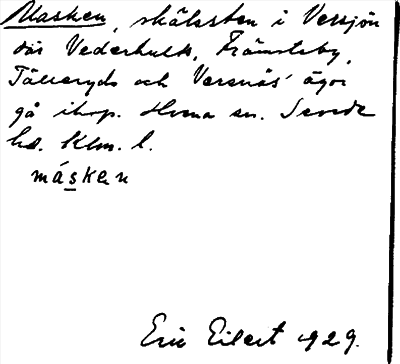 Masken, skälssten i Versjön
där Vederhult, Främsteby,
Tälleryds och Versnäs' ägor
gå ihop. Hvena sn. Sevede
hd. Klm. l.
másken
Eric Eilert 1929.